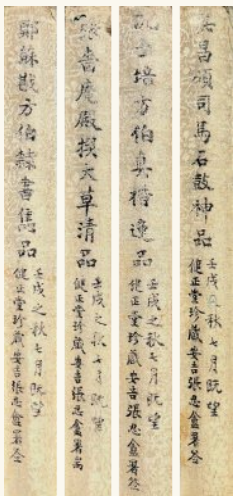 吳昌碩司馬石鼓神品
壬戌之秋七月既望
健正堂珍藏安吉張忠龕署签
沈子培方伯真楷逸品
壬戌之秋七月既望
健正堂珍藏安吉張忠龕署签
張嗇庵殿撰大草清品
壬戌之秋七月既望
健正堂珍藏安吉張忠龕署耑
鄭蘇戡方伯隸書雋品
壬戌之秋七月既望
健正堂珍藏安吉張忠龕署签